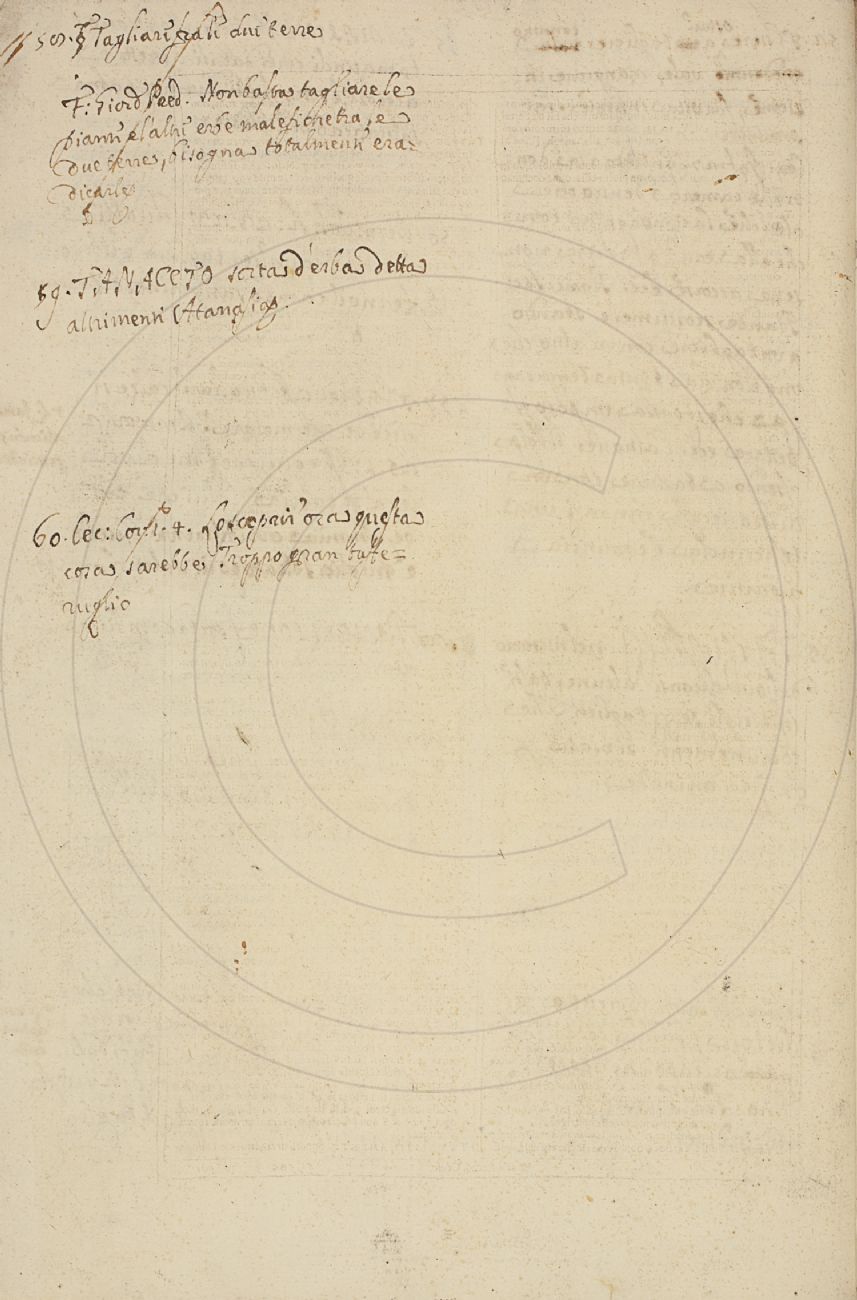 58. § Tagliare frale due terre
F. Giord. Pred. Non basta tagliare le
piante e l'altre erbe malefiche tra le
due terre, bisogna totalmente era=
dicarle
59. TANACETO sorta d'erba detta
altrimenti Atanasia.
60. Lec: 4. ora questa
cosa sarebbe Troppo gran taffe=
ruglio